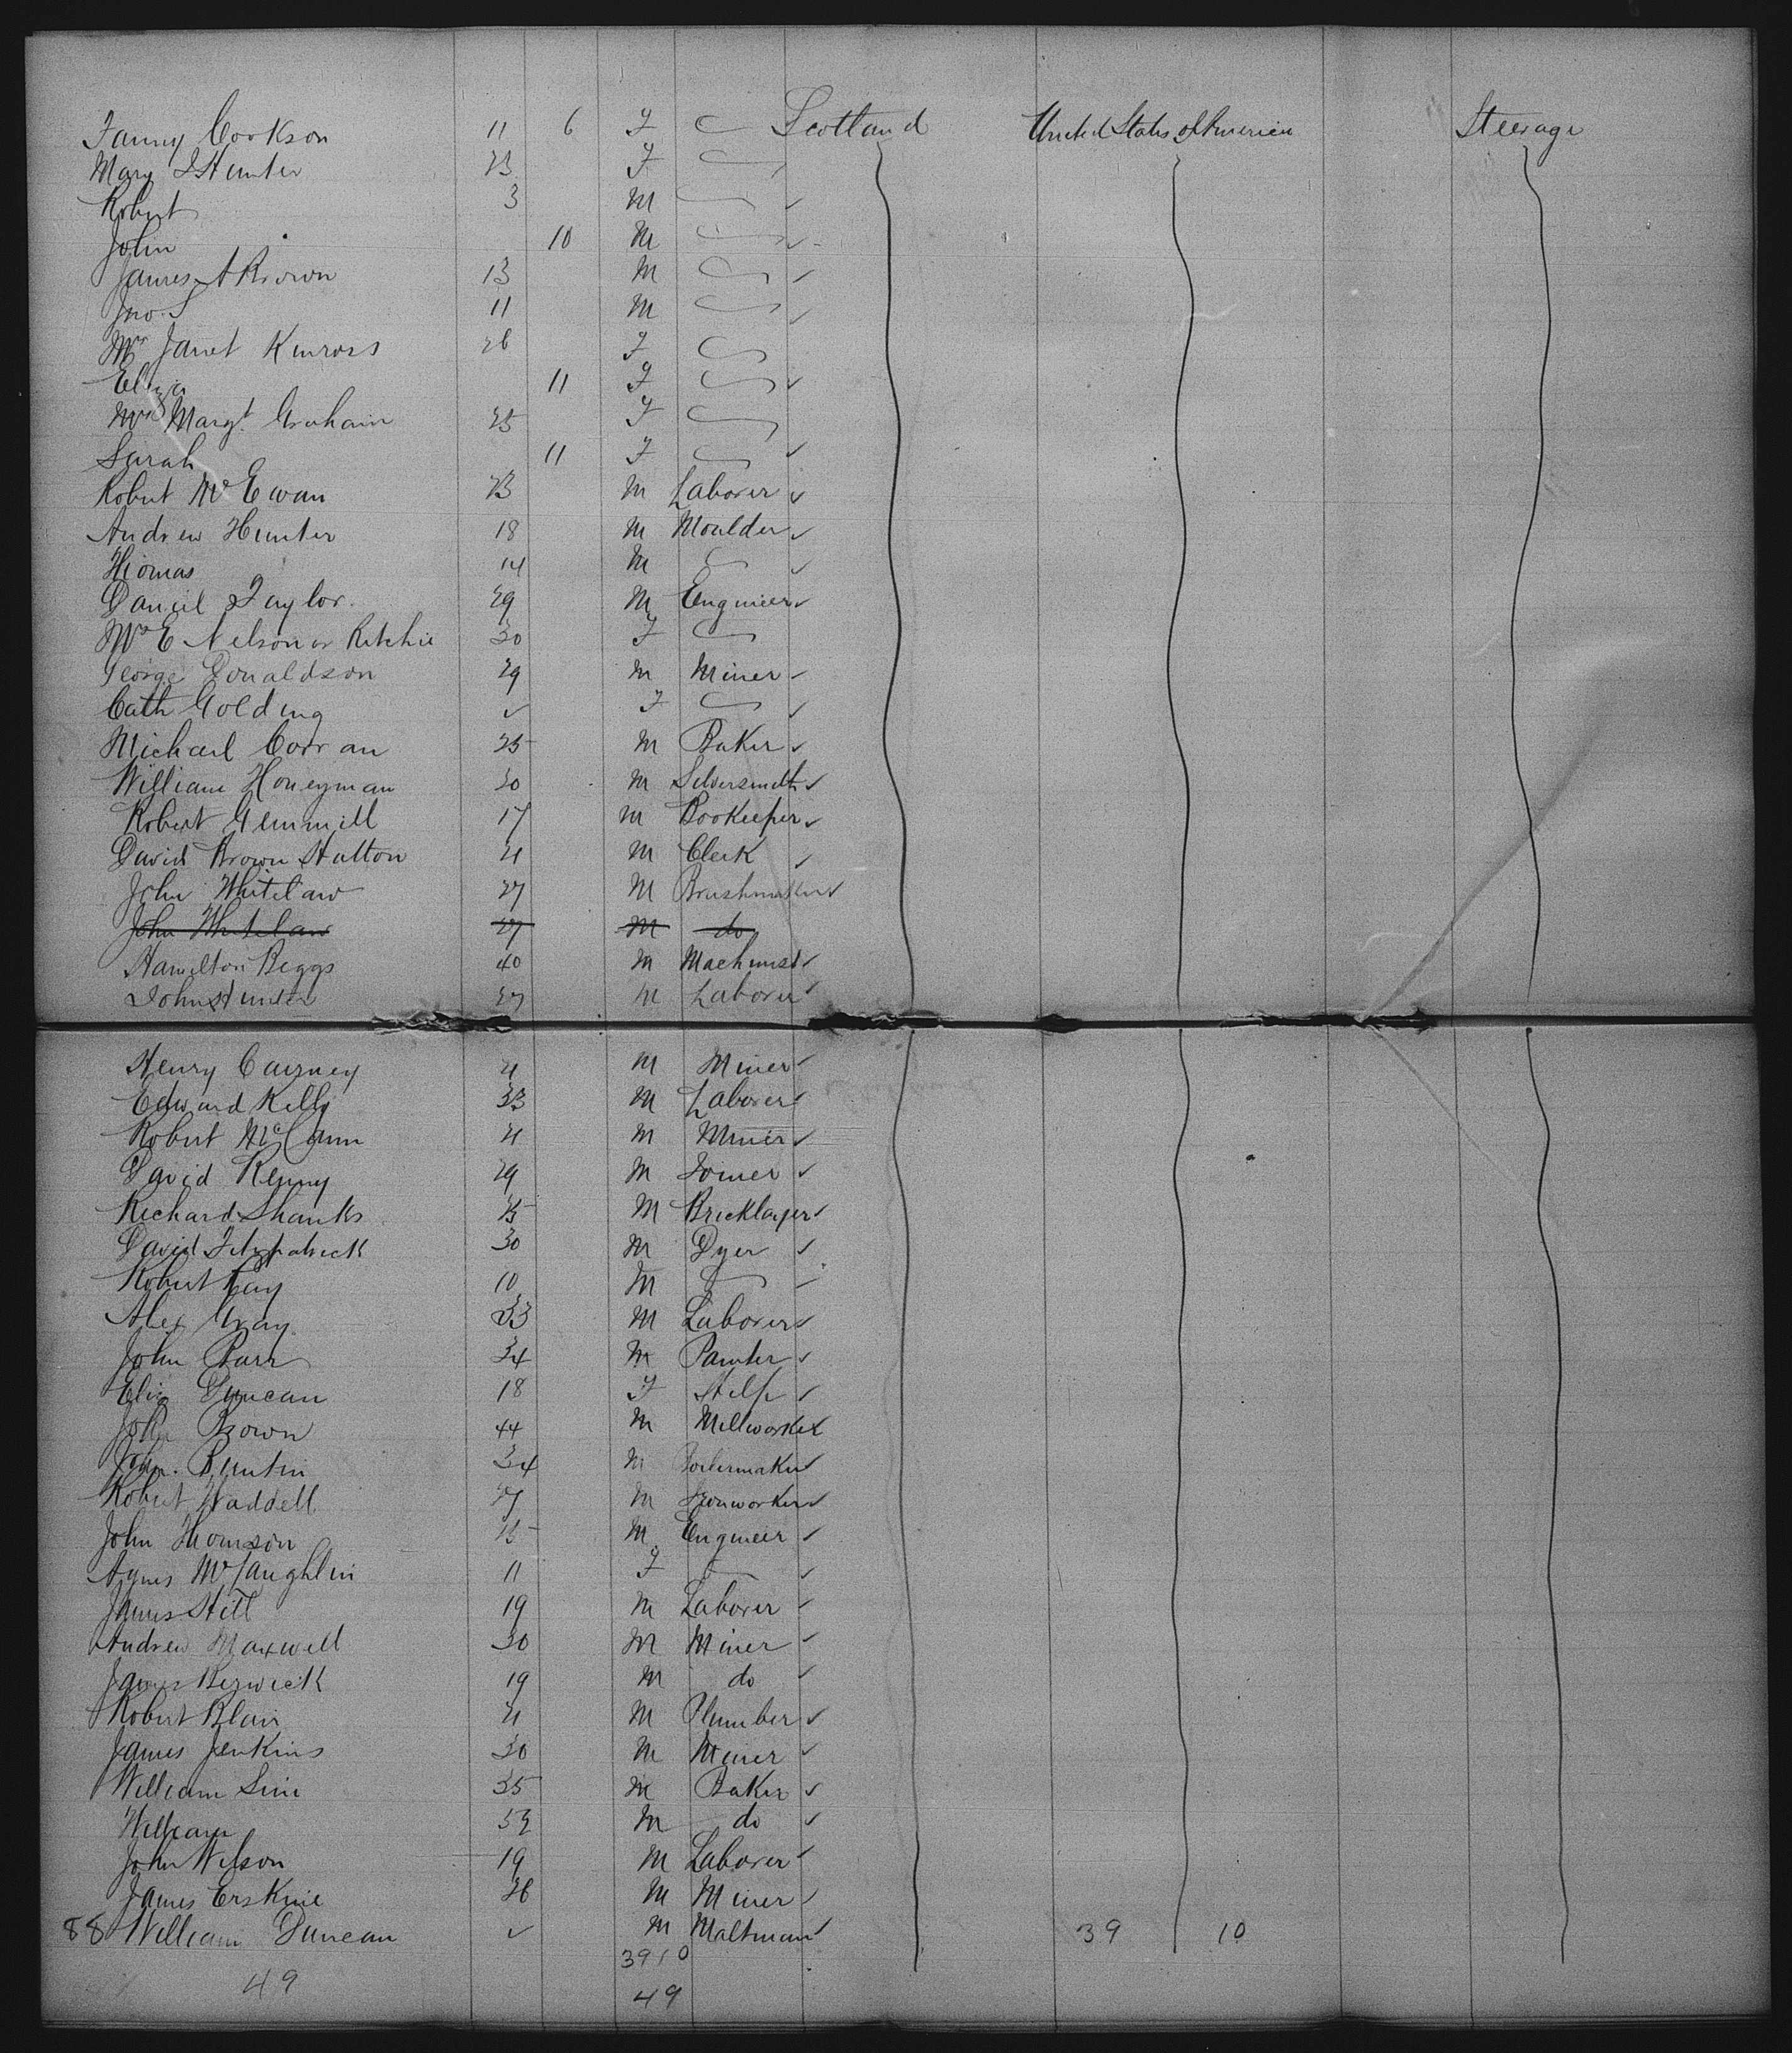 Fanny Cookson 11 6 F Scotland United States of America Steerage
Mary Hunter 23 F
Robert 3 M
John 10 M
James A Brown 13 M
Jno. S 11 M
Mrs Janet Kinross 26 F
Eliza 11 F
Mrs Margt. Graham 25 F
Sarah 11 F
Robert McEwan 23 M Laborer
Andrew Hunter 18 M Moulder
Thomas 14 M
Daniel Taylor 29 M Engineer
Mrs E Nelson or Ritchie 30 F
George Donaldson 29 M Miner
Cath Golding F
Michael Corran 25 M Baker
William Honeyman 30 M Silversmith
Robert Gemmill 17 M Bookeeper
David Brown Hutton 21 M Clerk
John Whitelaw 27 M Brushmaker
John Whitelaw 27 M do
Hamilton Beggs 40 M Machinist
John Hunter 27 M Laborer
Henry Cairney 21 M Miner
Edward Kelly 33 M Laborer
Robert McCann 21 M Miner
David Kenny 29 M Joiner
Richard Shanks 25 M Bricklayer
David Fitzpatrick 30 M Dyer
Robert 10 M
Alex Gray 33 M Laborer
John Barr 34 M Painter
Eliz Duncan 18 F Help
John Brown 44 M Millworker
John Buntin 34 M Boilermaker
Robert Waddell 27 M Ironworker
John Thomson 25 M Engineer
Agnes McLaughlin 11 F
James Hill 19 M Laborer
Andrew Maxwell 30 M Miner
James Berwick 19 M do
Robert Blair 21 M Plumber
James Jenkins 30 M Miner
William Sim 35 M Baker
William M do
John Wilson 19 M Laborer
James Erskine 26 M Miner
88 William Duncan M Maltman 39 10
39 10
49 49